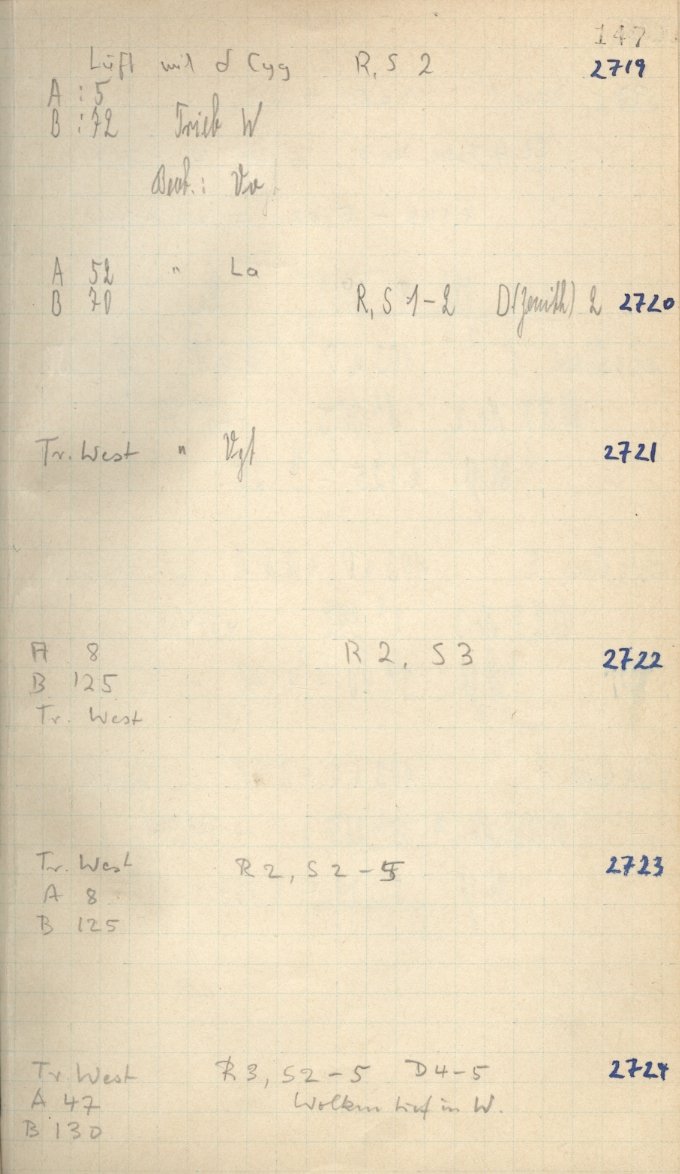 147
Luft mit δ Cyg R, S 2 2719
A : 5
B : 72 Trieb W
Beob.:
A 52 " La
B 70 R, S 1-2 D (Zenith) 2 2720
Tr. West " Vgt 2721
A 8 R 2, S 3 2722
B 125
Tr. West
Tr. West R 2, S 2-5 2723
A 8
B 125
Tr. West R 3, S 2-5 D 4-5 2724
A 47 Wolken tief in W.
B 130